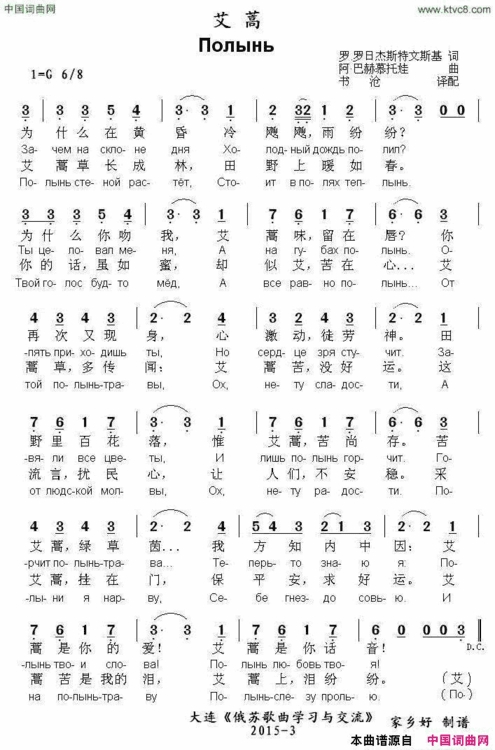 中国词曲网
www.ktvc8.com
艾蒿
Полынь
1=G 6/8
罗.罗日杰斯特文斯基 词
阿.巴赫慕托娃 曲
书沧 译配
3 3 3 5 4 3· 3 1 2 32 1 3 3 0 0
为什么在黄昏冷飕飕,雨纷纷?
За- чем на скло- не дня Хо- лод- ный дождь по- лил?
艾蒿草长成林,田野上暖如春。
По- лынь сте- ной рас- тёт, Сто- ит в по- лях теп- лынь.
3 3 3 5 4 3· 3 1 7 6 1 7 6· 6 3
为什么你吻我,艾蒿味,留在唇?你
Ты це- ло- вал ме- ня, А на гу- бах по- лынь. О-
你的话,虽如蜜,却似艾,苦在心...艾
Твой го- лос буд- то мёд, А все рав- но по- лынь... От
4 3 4 3 2· 2 4 3 1 4 3 2· 2 4
再次又现身,心激动,徒劳神。田
-пять при- хо- дишь ты, Но серд- це зря сту- чит. За-
蒿草,多传闻;艾蒿苦,没好运。这
той по- лынь-тра- вы, Ох, не- ту сла- дос- ти, А
7 6 1 7 3· 3 1 7 6 1 7 6· 6 3
野里百花落,惟艾蒿,苦尚存。苦
-вя- ли все цве- ты, И лишь по- лынь гор- чит. Го-
流言,扰民心,让人们,不安稳。采
от людс- кой мол- вы, Ох, не- ту ра- дос- ти. По-
4 3 4 3 2· 2 4 5 4 3 2 1 3 2· 2 1
艾蒿,绿草茵...我方知内中因;艾
-рчит по- лынь- тра- ва... Те- перь- то зна- ю я: По-
艾蒿,挂在门,保平安,求好运。艾
-лы- ни я нар- ву, Се- бе гнез- до совь- ю. И
7 6 1 7 3· 3 1 7 6 1 7 6 0 0 0 0
D.C.
蒿是你的爱!艾蒿是你话音!
-лынь тво- и сло- ва! По- лынь лю- бовь тво- я!
蒿苦是我的泪,艾蒿上,泪纷纷。(艾)
на по- лынь-тра- ву По- лынь-сле- зу проль- ю. (По-)
大连《俄苏歌曲学习与交流》 家乡好 制谱
2015-3
本曲谱源自 中国词曲网